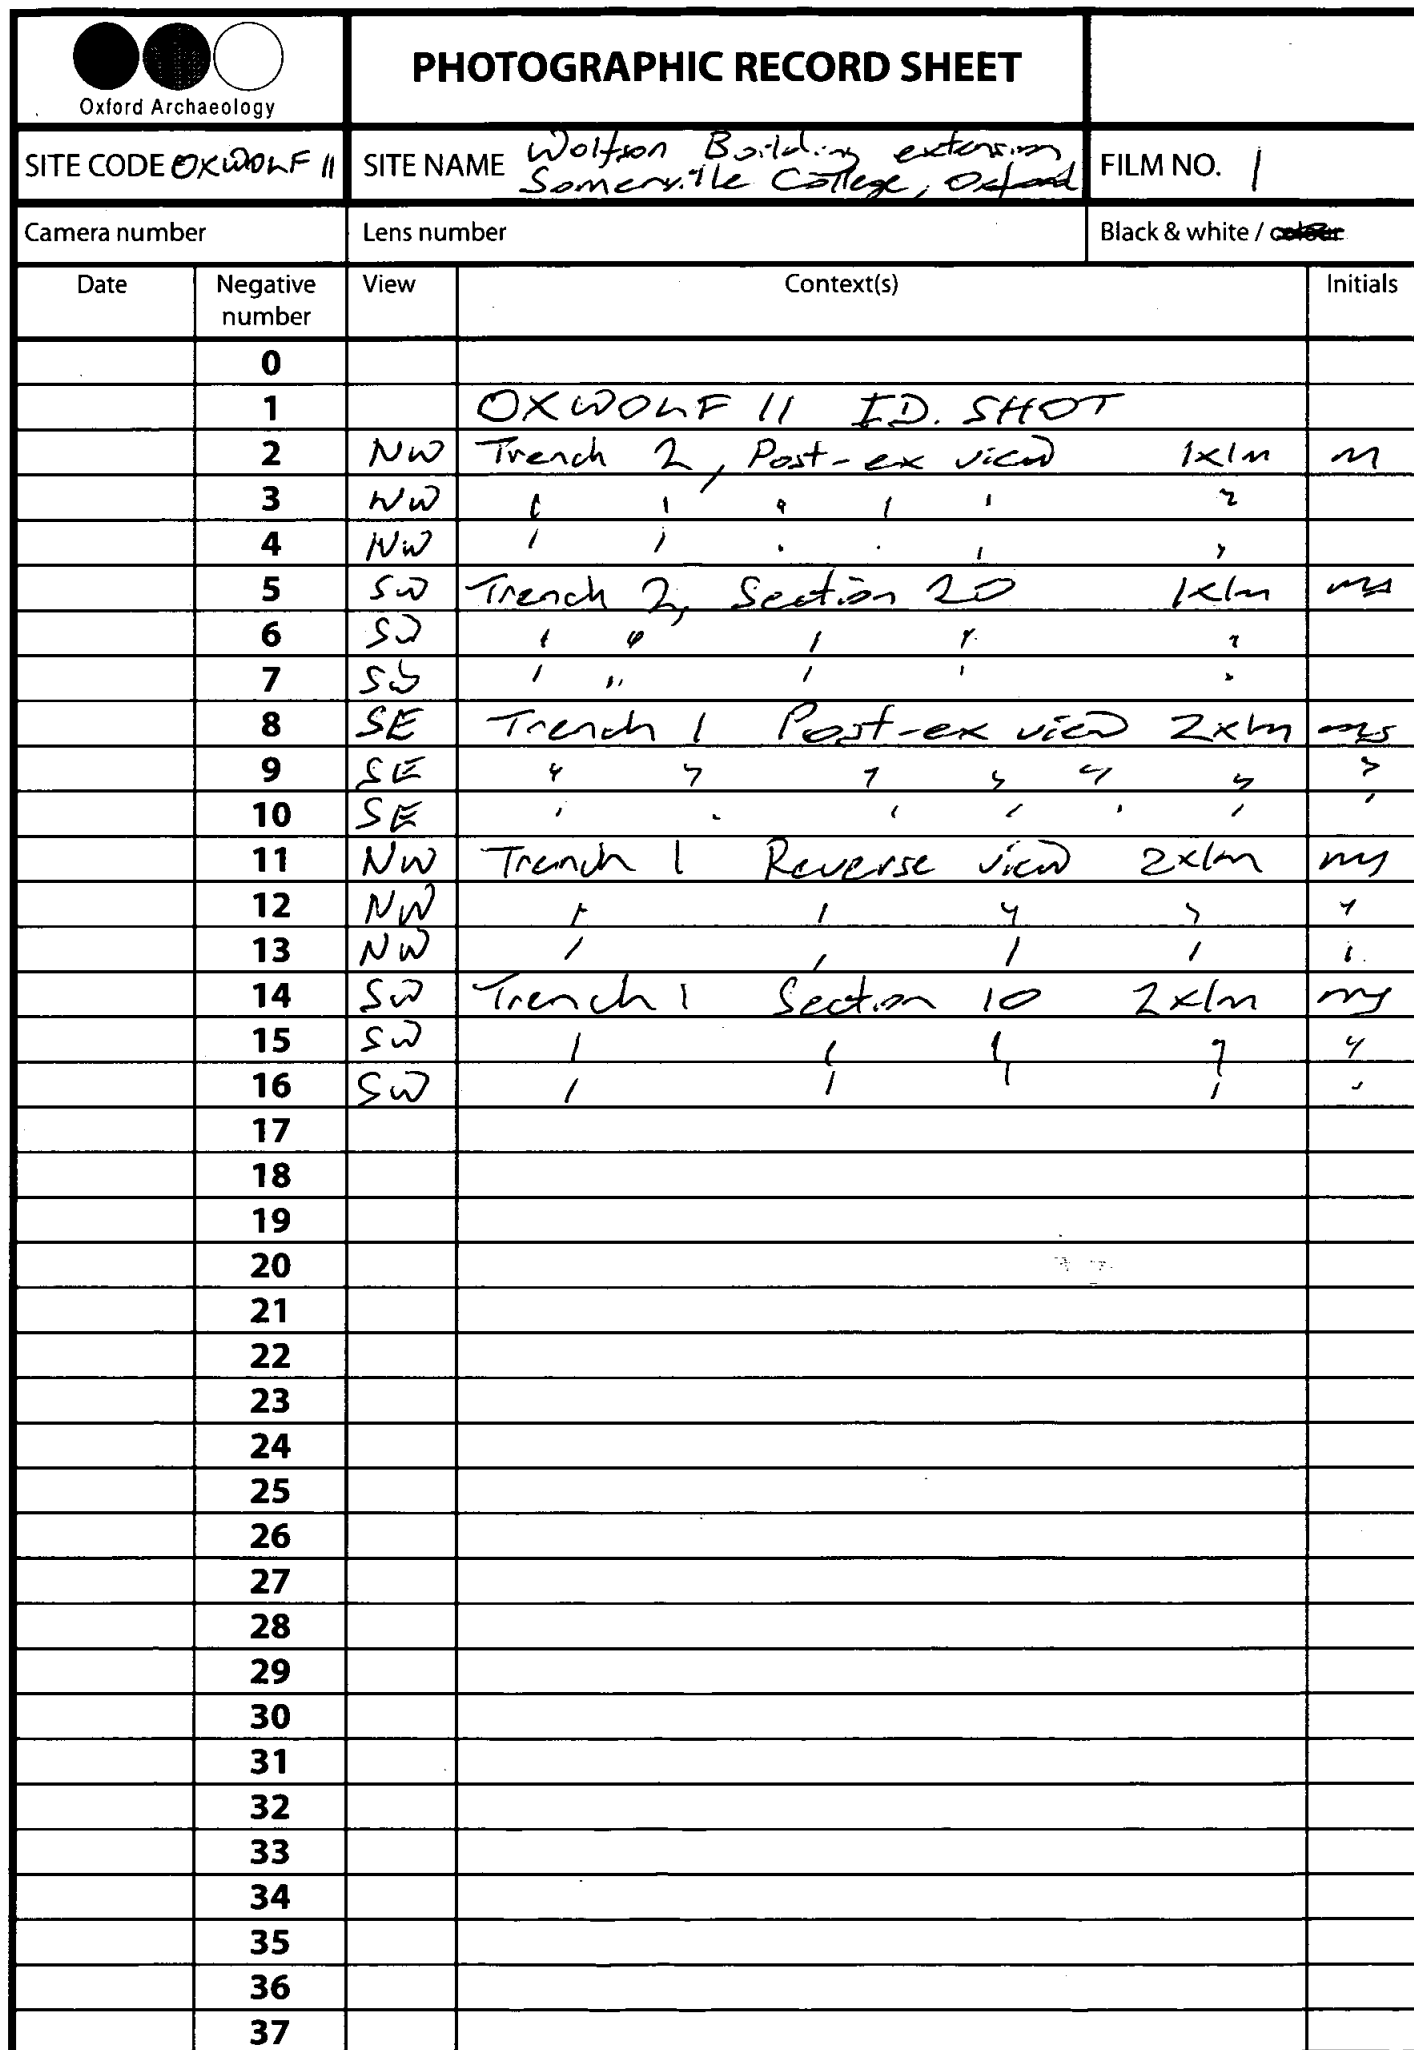 Oxford Archaeology
PHOTOGRAPHIC RECORD SHEET
SITE CODE OXWOLF 11 SITE NAME Wolfson Building extension
Somerville College, Oxford FILM NO. 1
Camera number Lens number Black & white / colour
Date Negative number View Context(s) Initials
0
1 OXWOLF 11 I.D. SHOT
2 NW Trench 2, Post-ex view 1x1m
3 NW " " " " " "
4 NW " " " " " "
5 SW Trench 2, Section 20 1x1m ms
6 SW " " " " "
7 SW " " " " "
8 SE Trench 1 Post-ex view 2x1m ms
9 SE " " " " " " "
10 SE " " " " " " "
11 NW Trench 1 Reverse view 2x1m ms
12 NW " " " " "
13 NW " " " " "
14 SW Trench 1 Section 10 2x1m ms
15 SW " " " " "
16 SW " " " " "
17
18
19
20
21
22
23
24
25
26
27
28
29
30
31
32
33
34
35
36
37